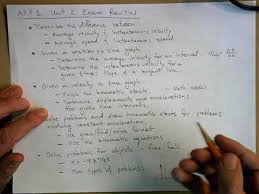 APP1 Unit 2 Exam Review
• Describe the difference between
- Average velocity & instantaneous velocity
- Average speed & instantaneous speed
• Given a position vs time graph
- Determine the average velocity for an interval.
- Determine the instantaneous velocity for a
given time. Slope of a tangent line.
• Given a velocity vs time graph
- Finish the kinematic stack - Math model
- Determine displacements and accelerations
for given time intervals.
Solve problems and draw kinematic stacks for problems
involving constant accelerations.
- Use given/find/solve format
- Use the kinematic equations
• Solve problems for objects in free fall
- Two types of problems